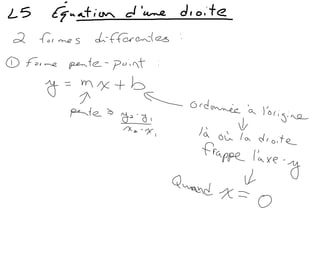 L5 Équation d'une droite
2 formes différentes :
① Forme pente-point :
y = mx + b
pente => y₂-y₁ / x₂-x₁
ordonnée à l'origine
là où la droite
frappe l'axe-y
Quand x = 0